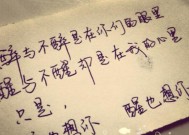 醉与不醉是在你们的眼里
醒与不醒却是在我的心里
只是,
醒也想你
也想你